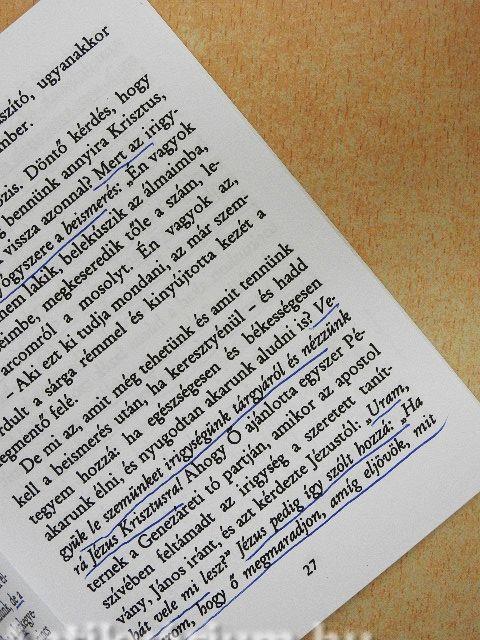 szító, ugyanakkor
mber.
ózis. Döntő kérdés, hogy
g bennünk annyira Krisztus,
vissza azonnal! Mert az irigy-
yógyszere a beismerés: „Én vagyok
nem lakik, belekúszik az álmaimba,
eimbe, megkeseredik tőle a szám, le-
arcomról a mosolyt. Én vagyok az,
– Aki ezt ki tudja mondani, az már szem-
rdult a sárga rémmel és kinyújtotta kezét a
egmentő felé.
De mi az, amit még tehetünk és amit tennünk
kell a beismerés után, ha keresztyénül – és hadd
tegyem hozzá: ha egészségesen és békességesen
akarunk élni, és nyugodtan akarunk aludni is? Ve-
gyük le szemünket irigységünk tárgyáról és nézzünk
rá Jézus Krisztusra! Ahogy Ő ajánlotta egyszer Pé-
ternek a Genezáreti tó partján, amikor az apostol
szívében feltámadt az irigység a szeretett tanít-
vány, János iránt, és azt kérdezte Jézustól: „Uram,
hát vele mi lesz?” Jézus pedig így szólt hozzá: „Ha
rom, hogy ő megmaradjon, amíg eljövök, mit
27